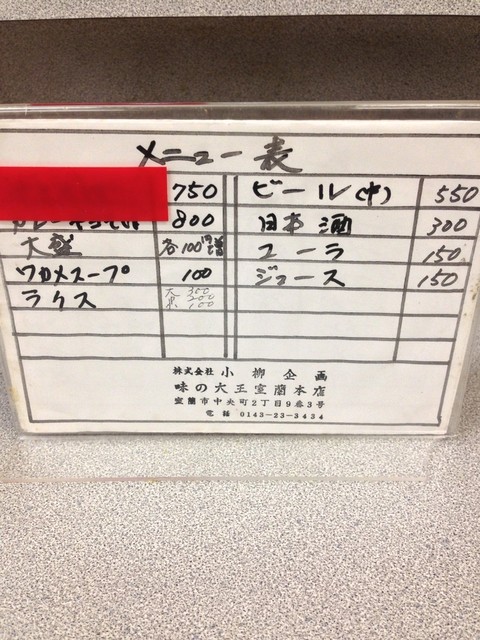 メニュー表
750
ビール(中) 550
800
日本酒 300
大盛 各100円増
コーラ 150
ワカメスープ 100
ジュース 150
ライス 大 300
200
100
株式会社 小柳企画
味の大王室蘭本店
室蘭市中央町2丁目9番3号
電話 0143-23-3434